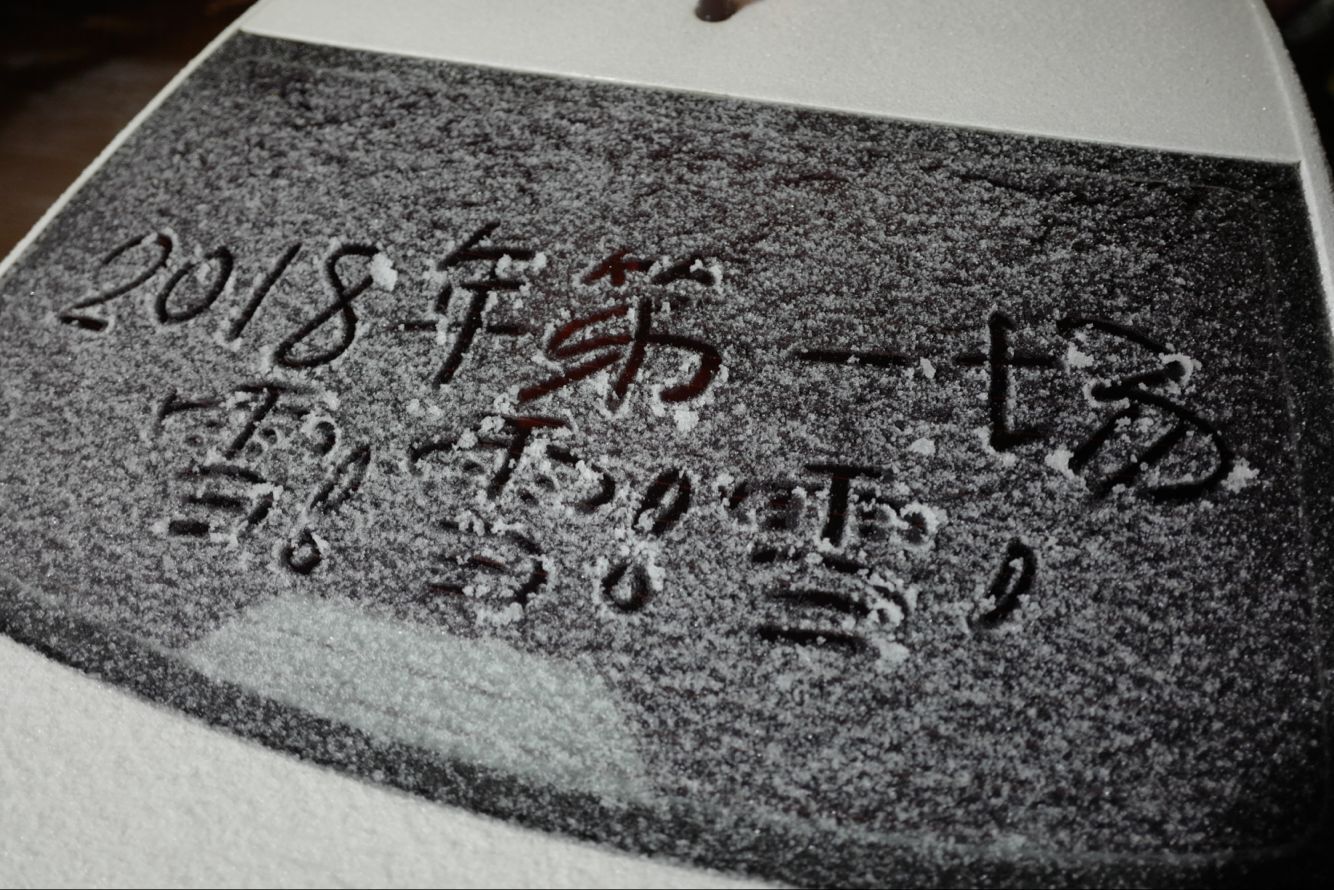 2018年第一场
雪!雪!雪!